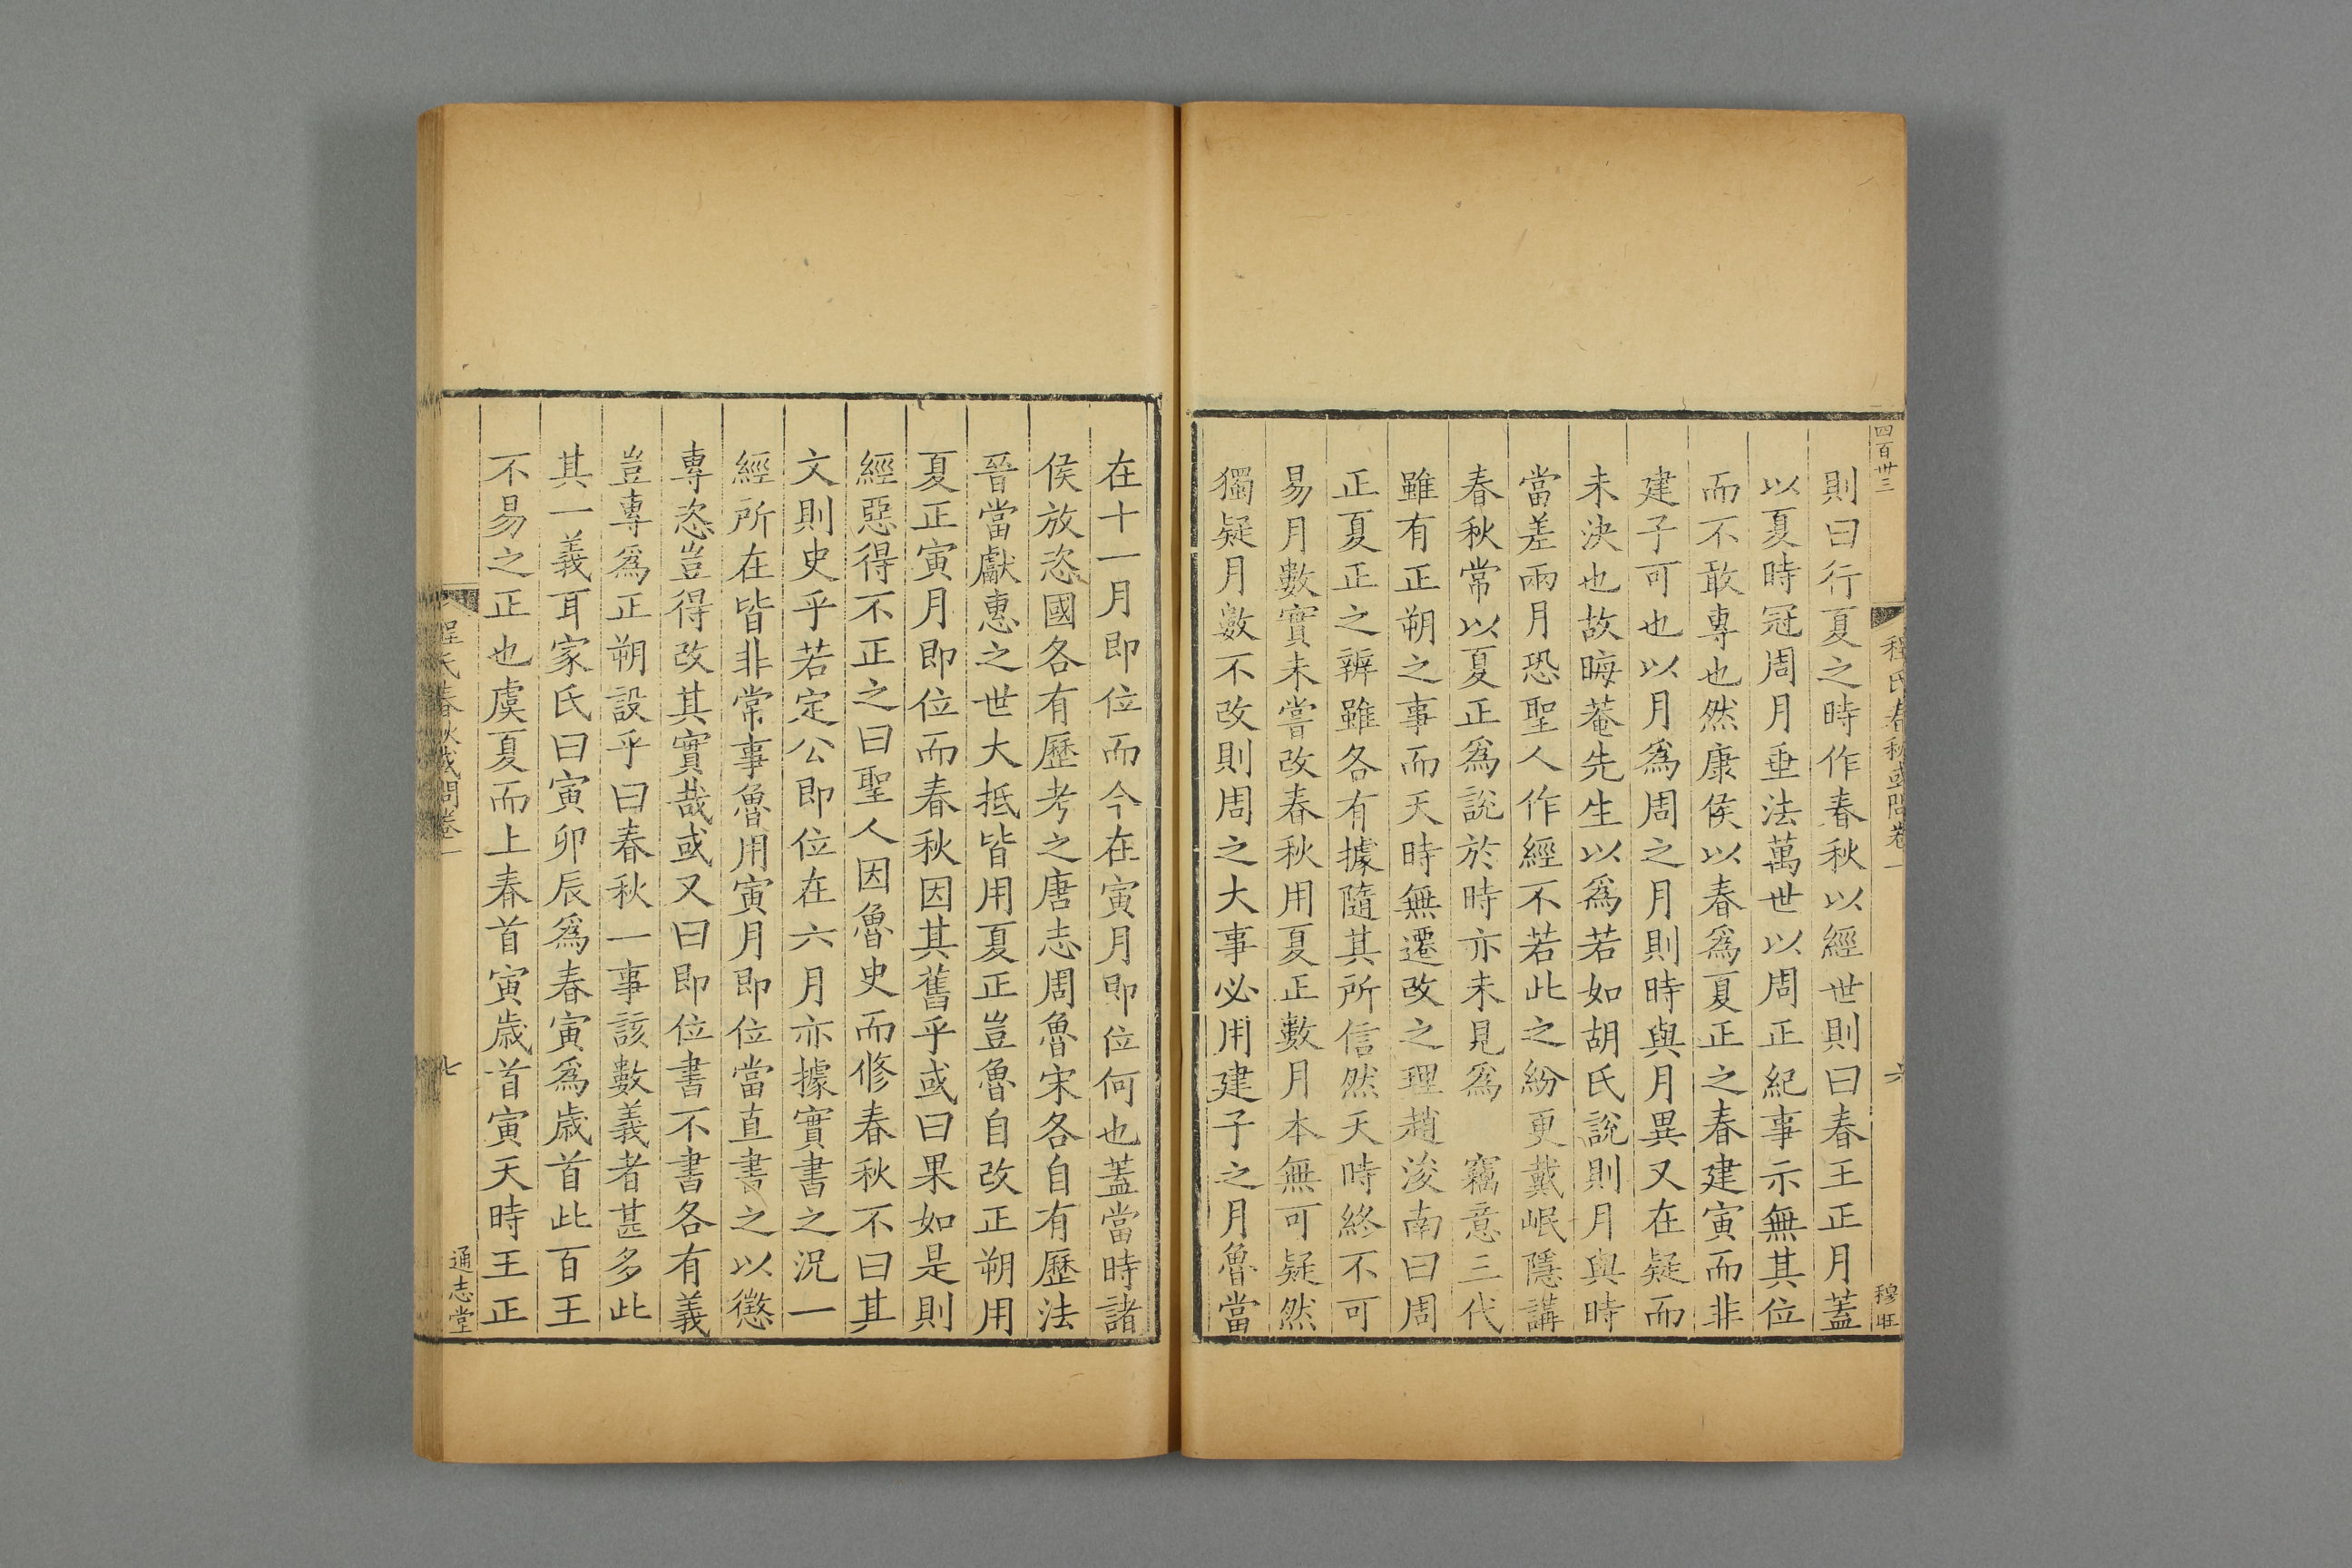 四百卅三
程氏春秋或問卷一
六
穆旺
則曰行夏之時作春秋以經世則曰春王正月蓋
以夏時冠周月垂法萬世以周正紀事示無其位
而不敢專也然康侯以春爲夏正之春建寅而非
建子可也以月爲周之月則時與月異又在疑而
未決也故晦菴先生以爲若如胡氏說則月與時
當差兩月恐聖人作經不若此之紛更戴岷隱講
春秋常以夏正爲說於時亦未見爲 竊意三代
雖有正朔之事而天時無遷改之理趙浚南曰周
正夏正之辨雖各有據隨其所信然天時終不可
易月數實未嘗改春秋用夏正數月本無可疑然
獨疑月數不改則周之大事必用建子之月魯當
在十一月即位而今在寅月即位何也蓋當時諸
侯放恣國各有歷考之唐志周魯宋各自有歷法
晉當獻惠之世大抵皆用夏正豈魯自改正朔用
夏正寅月即位而春秋因其舊乎或曰果如是則
經惡得不正之曰聖人因魯史而修春秋不曰其
文則史乎若定公即位在六月亦據實書之況一
經所在皆非常事魯用寅月即位當直書之以懲
專恣豈得改其實哉或又曰即位書不書各有義
豈專爲正朔設乎曰春秋一事該數義者甚多此
其一義耳家氏曰寅卯辰爲春寅爲歲首此百王
不易之正也虞夏而上春首寅歲首寅天時王正
程氏春秋或問卷一
七
通志堂